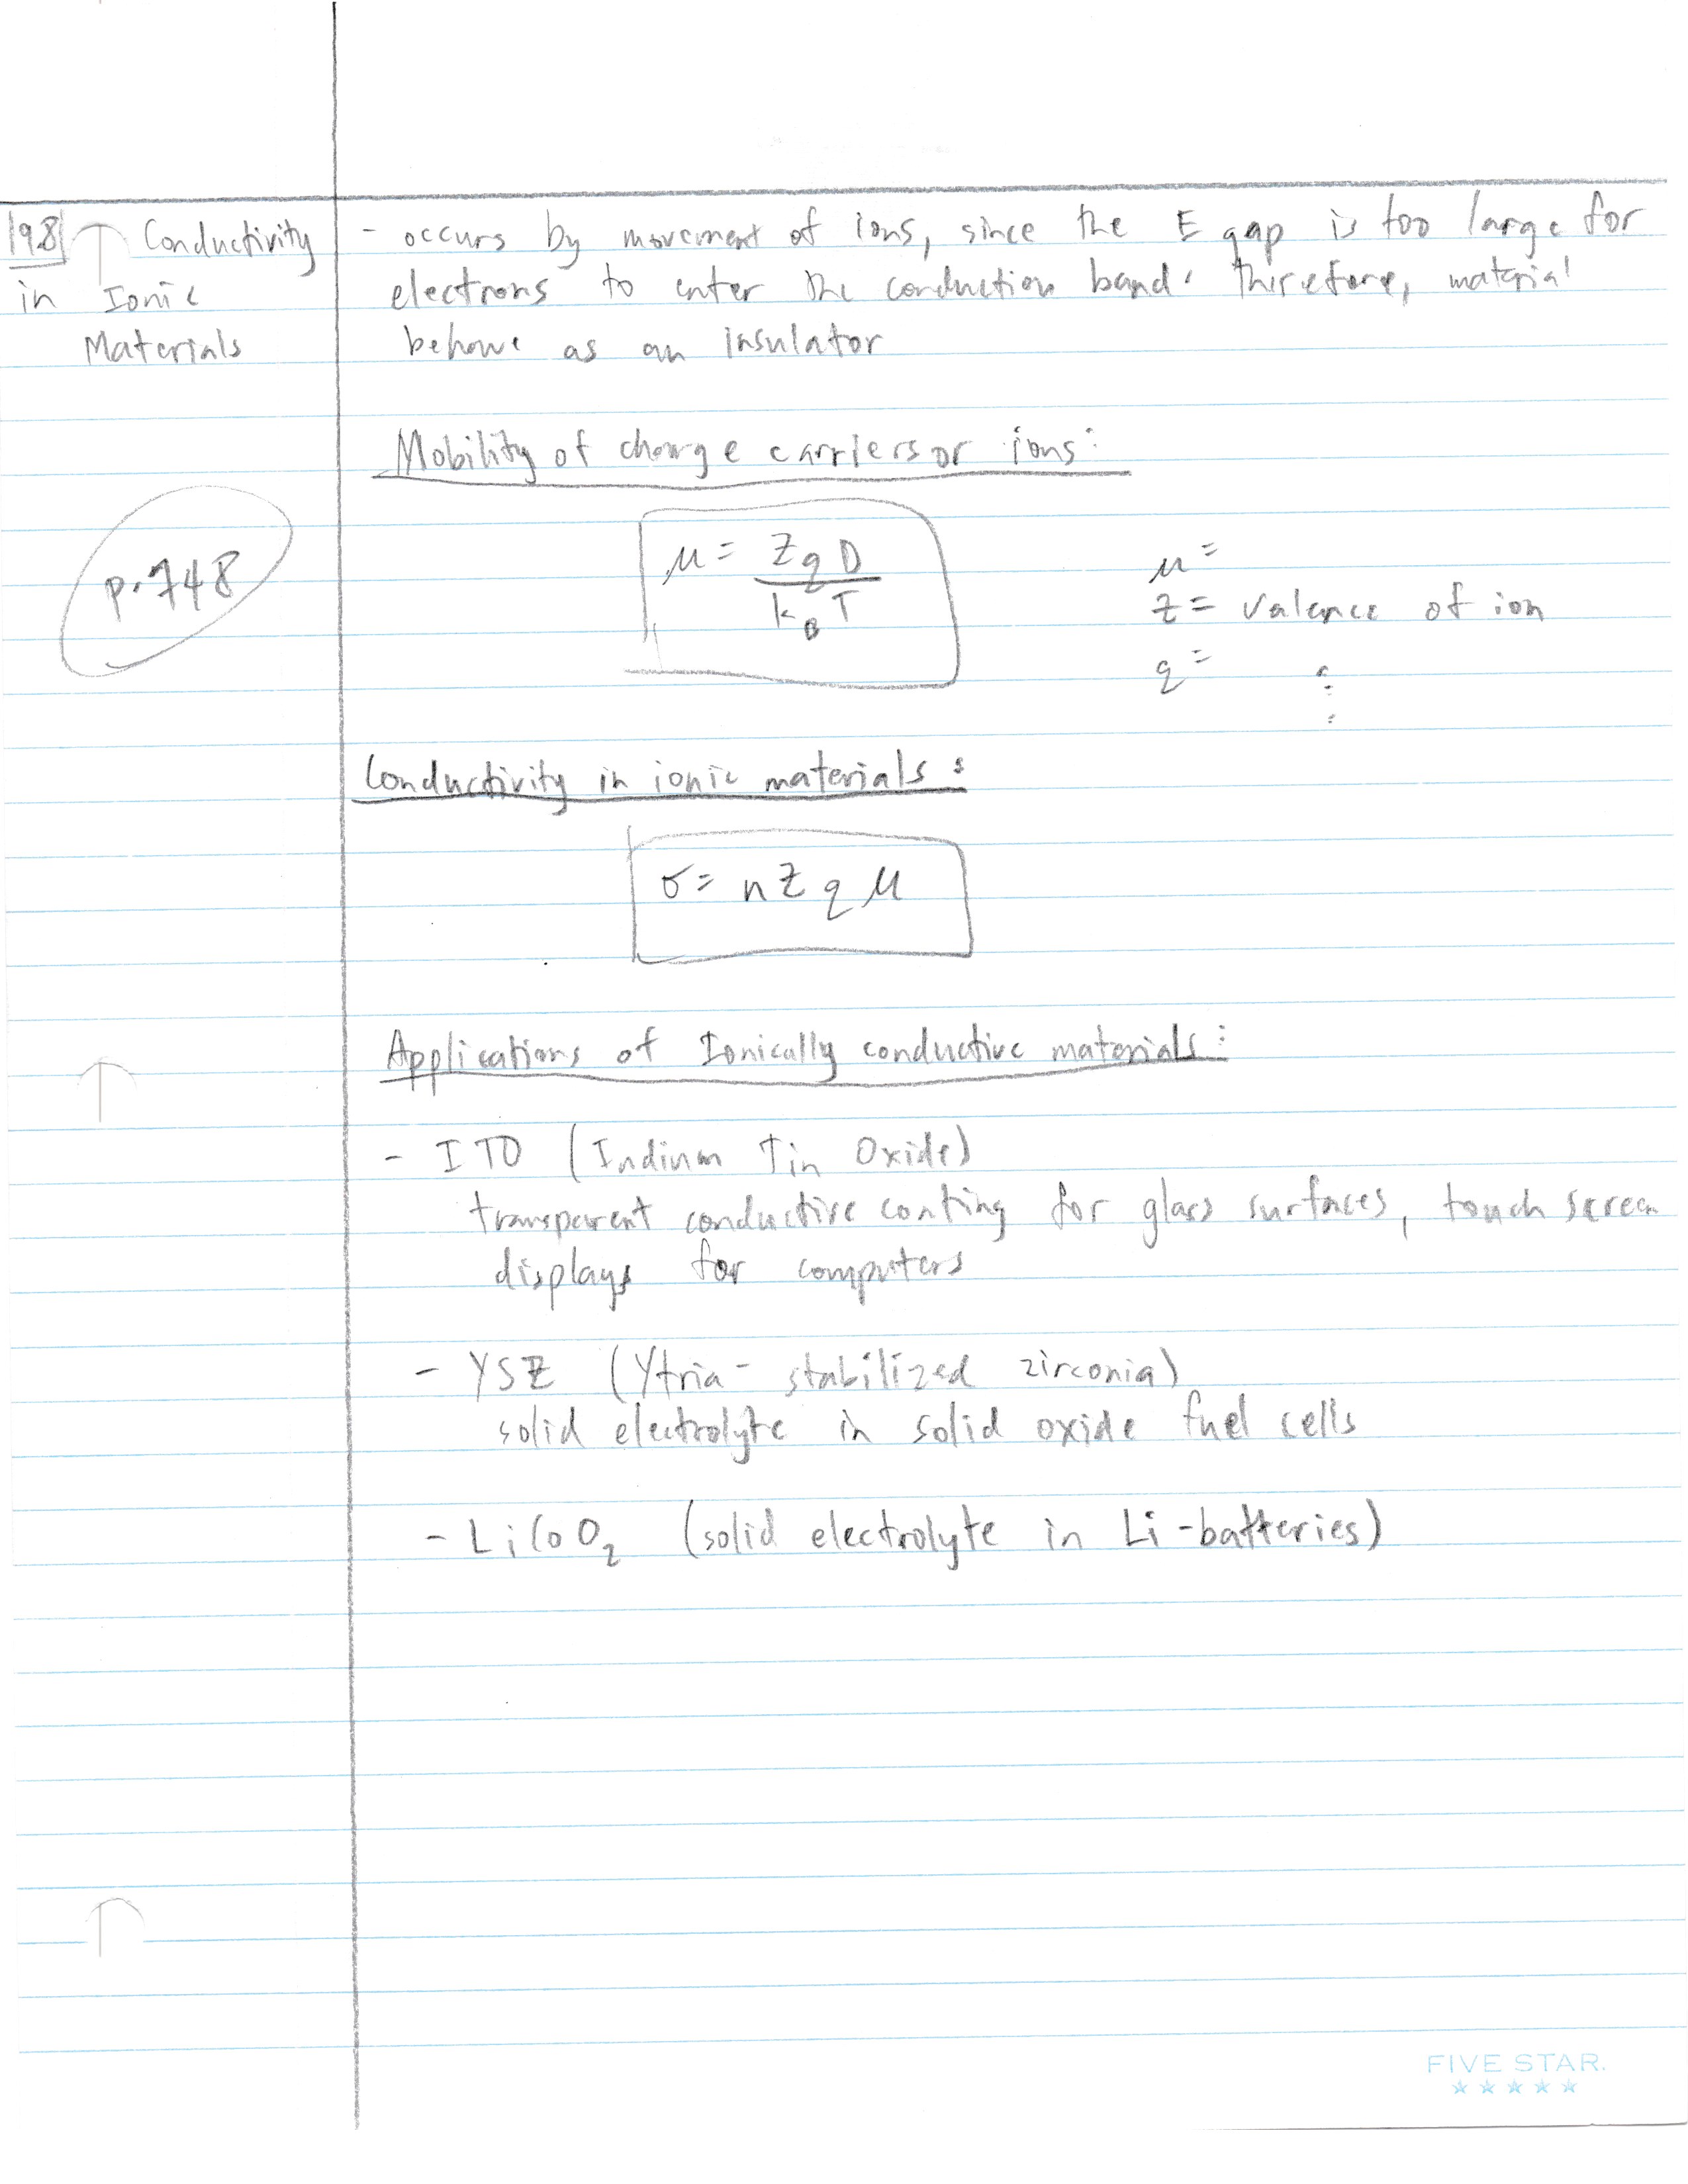 19.8 Conductivity
in Ionic
Materials
- occurs by movement of ions, since the E gap is too large for
electrons to enter the conduction band. therefore, material
behave as an insulator
Mobility of charge carriers or ions:
p. 748
μ = Z q D / k_B T
μ =
Z = valence of ion
q =
Conductivity in ionic materials:
σ = n Z q μ
Applications of Ionically conductive materials:
- ITO (Indium Tin Oxide)
transparent conductive coating for glass surfaces, touch screen
displays for computers
- YSZ (Ytria-stabilized zirconia)
solid electrolyte in solid oxide fuel cells
- LiCoO₂ (solid electrolyte in Li-batteries)
FIVE STAR.